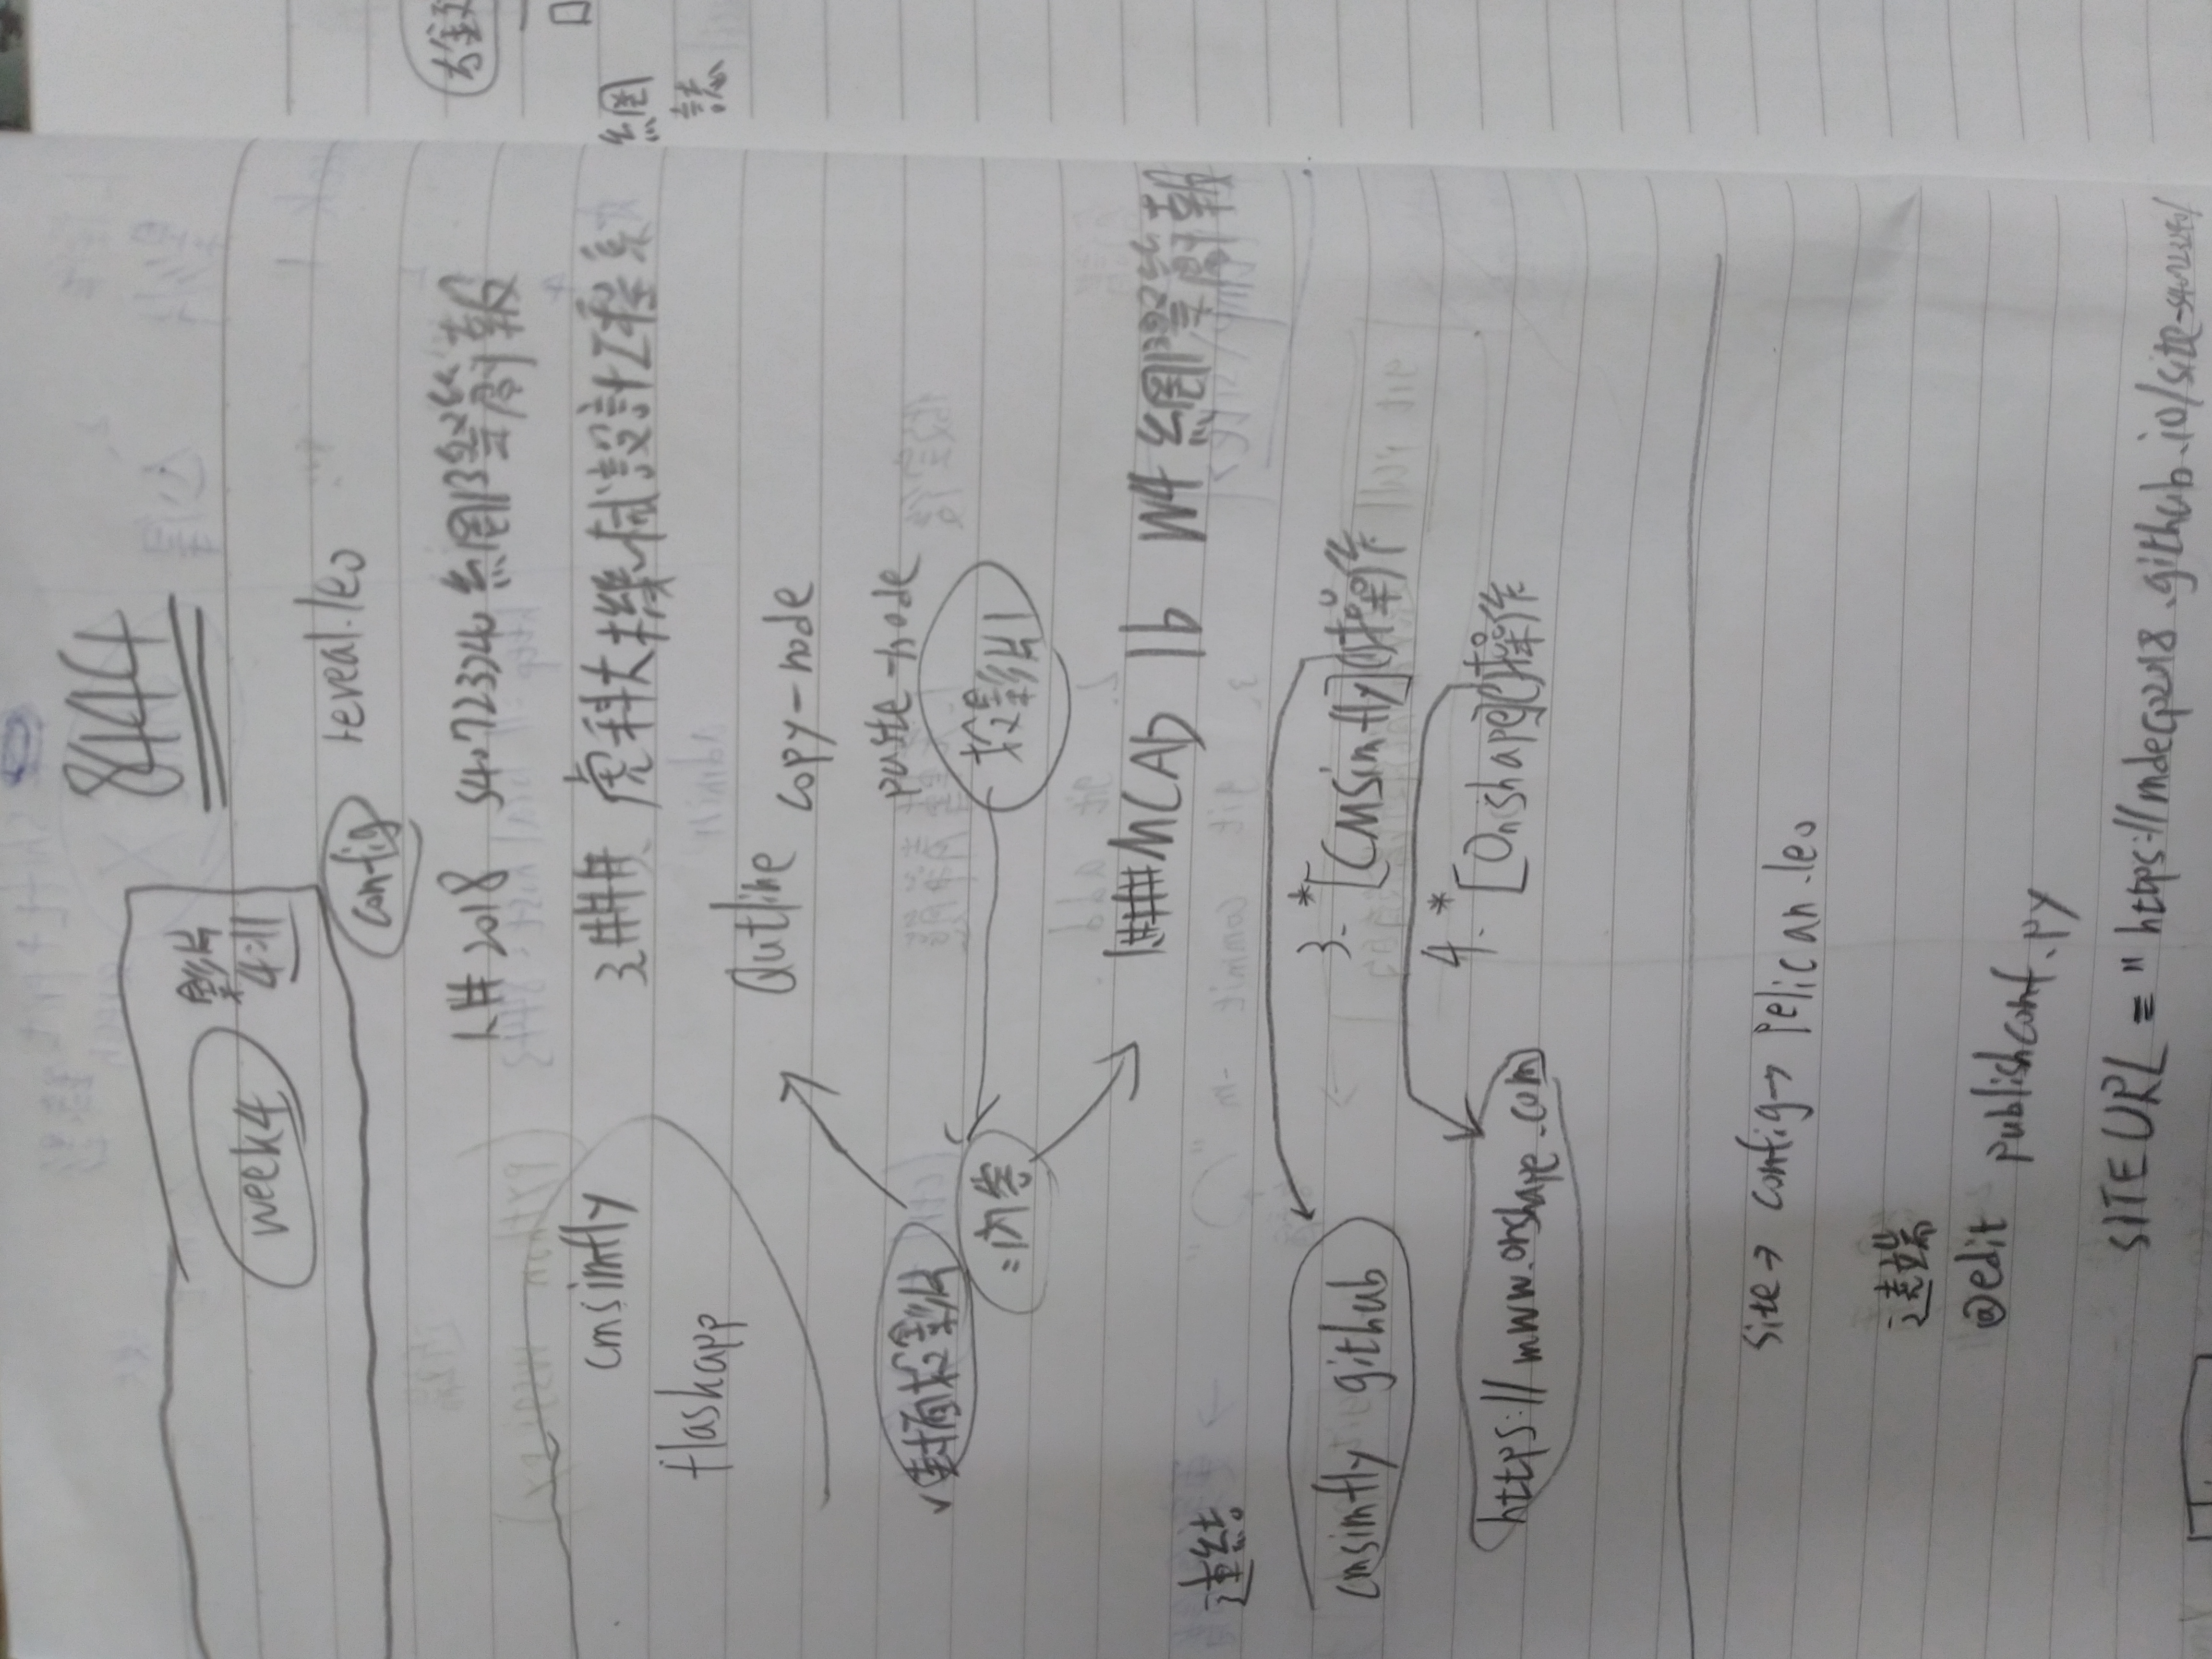 8444
week4 影片
4:11
config reveal.leo
1.# 2018 S40723240 網際簡報
cmsimfly
3.### 虎科大機械設計工程系
flaskapp
Outline
copy-node
paste-node
✓封面投影片
=內容
投影片1
1.### MCAD 1b W4 網際簡報
連結
cmsimfly github
3. *[CMSimfly]()操作
4. *[Onshape]()操作
https://www.onshape.com
site→ config→ pelican.leo
遠端
@edit publishconf.py
SITEURL = "https://mdecp2018.github.io/site-s40723240/
網
誌